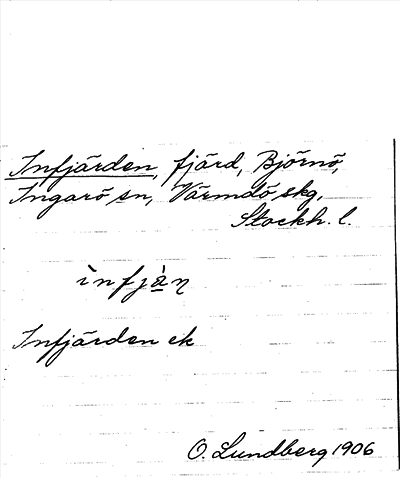 Infjärden, fjärd, Björnö,
Ingarö sn, Värmdö skg,
Stockh. l.
ìnfjà̲ṇ
Infjärden ek
O. Lundberg 1906